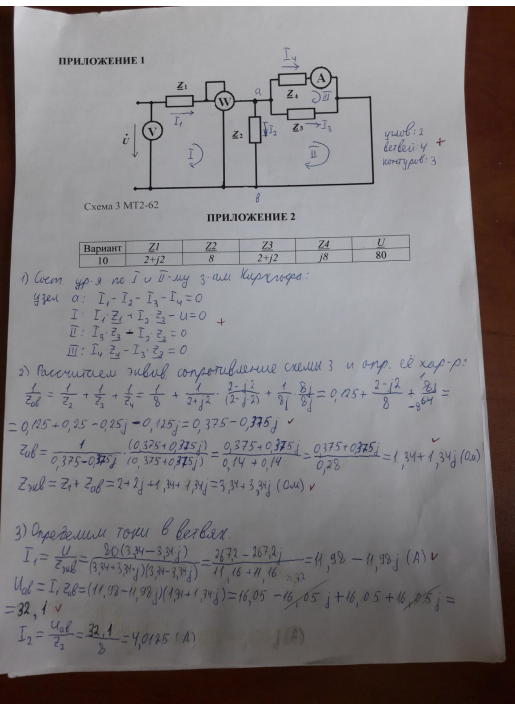 ПРИЛОЖЕНИЕ 1
I₄
Z1
W
a
Z4
A
III
I₁
Z2
I₂
Z3
I₃
V
U̇
I
II
узлов: 2
ветвей: 4
контуров: 3
+
в
Схема 3 МТ2-62
ПРИЛОЖЕНИЕ 2
Вариант Z1 Z2 Z3 Z4 U
10 2+j2 8 2+j2 j8 80
1) Сост. ур-я по I и II-му з-ам Кирхгофа:
узел a: I₁-I₂-I₃-I₄=0
I: I₁·Z₁+I₂·Z₂-U=0
II: I₃·Z₃-I₂·Z₂=0 +
III: I₄·Z₄-I₃·Z₃=0
2) Рассчитаем эквив. сопротивление схемы 3 и опр. её хар-р:
1/Zав = 1/Z₂ + 1/Z₃ + 1/Z₄ = 1/8 + 1/(2+j2) · (2-j2)/(2-j2) + 1/8j · 8j/8j = 0,125 + (2-j2)/8 + 8j/-64 =
= 0,125+0,25-0,25j-0,125j = 0,375-0,375j ✓
Zав = 1/(0,375-0,375j) · (0,375+0,375j)/(0,375+0,375j) = (0,375+0,375j)/(0,14+0,14) = (0,375+0,375j)/0,28 = 1,34+1,34j (Ом) ✓
Zэкв = Z₁+Zав = 2+2j+1,34+1,34j = 3,34+3,34j (Ом) ✓
3) Определим токи в ветвях.
I₁ = U/Zэкв = 80(3,34-3,34j)/(3,34+3,34j)(3,34-3,34j) = (267,2-267,2j)/(11,16+11,16) = 11,98-11,98j (А) ✓
Uав = I₁·Zав = (11,98-11,98j)(1,34+1,34j) = 16,05-16,05j+16,05+16,05j =
= 32,1 ✓
I₂ = Uав/Z₂ = 32,1/8 = 4,0125 (А)